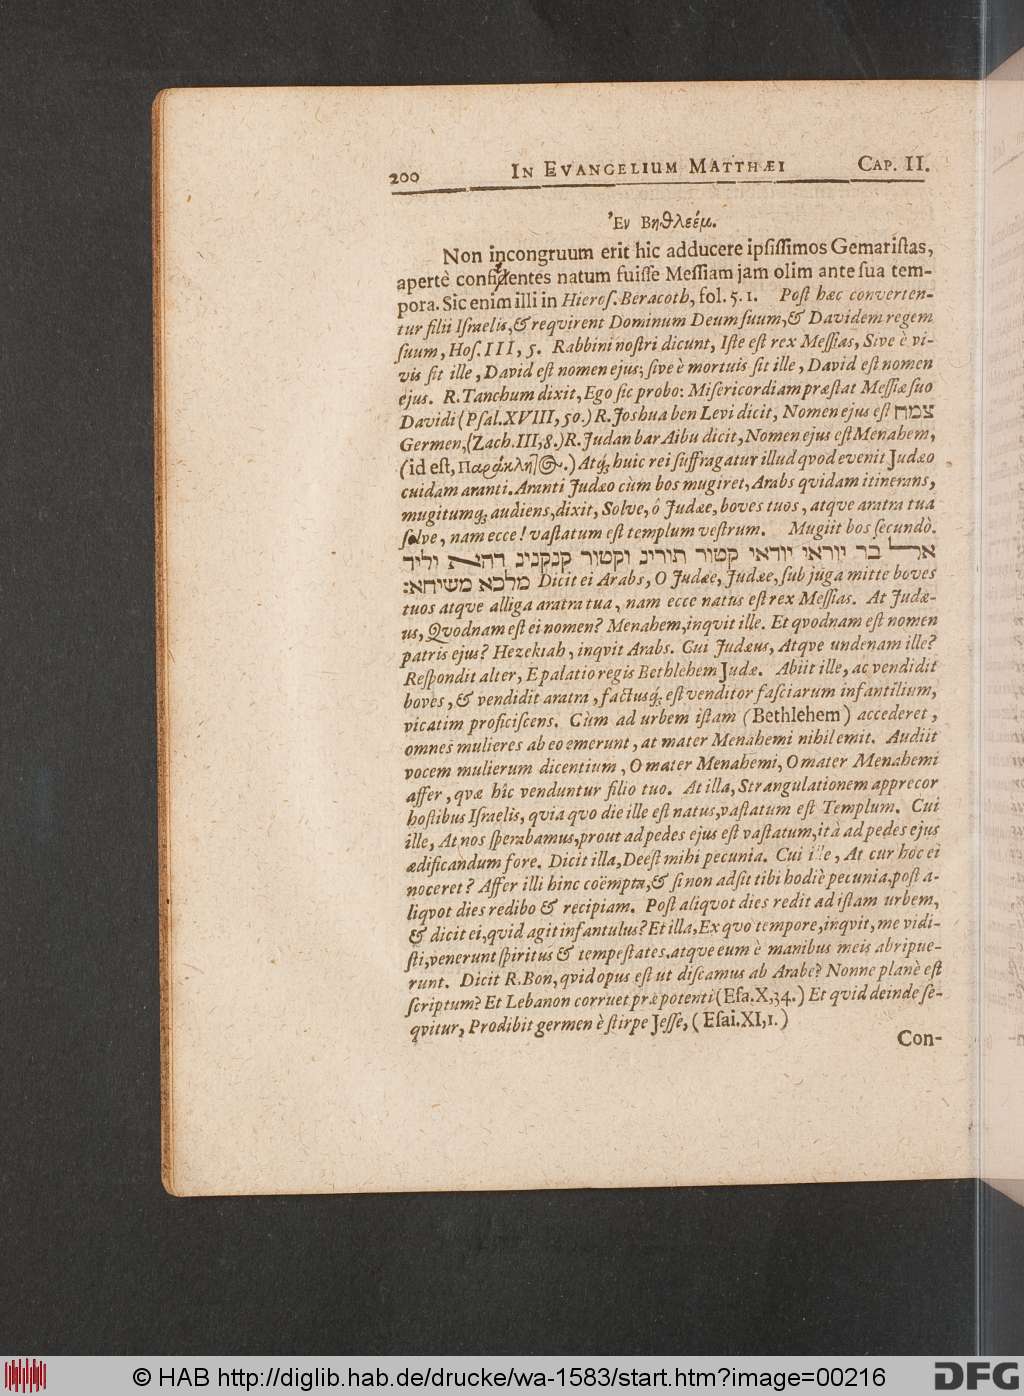 200 IN EVANGELIUM MATTHÆI CAP. II.
Ἐν Βηθλεέμ.
Non incongruum erit hic adducere ipsissimos Gemaristas,
apertè entes natum fuisse Messiam jam olim ante sua tem-
pora. Sic enim illi in Hieros. Beracoth, fol. 5. 1. Post hæc converten-
tur filii Israelis, & reqvirent Dominum Deum suum, & Davidem regem
suum, Hos. III, 5. Rabbini nostri dicunt, Iste est rex Messias, Sive è vi-
vis sit ille, David est nomen ejus; sive è mortuis sit ille, David est nomen
ejus. R. Tanchum dixit, Ego sic probo: Misericordiam præstat Messiæ suo
Davidi (Psal. XVIII, 50.) R. Joshua ben Levi dicit, Nomen ejus est צמח
Germen, (Zach. III, 8.) R. Judan bar Aibu dicit, Nomen ejus est Menahem,
(id est, Παράκλητος.) Atq; huic rei suffragatur illud qvod evenit Judæo
cuidam aranti. Aranti Judæo cùm bos mugiret, Arabs qvidam itinerans,
mugitumq; audiens, dixit, Solve, ô Judæe, boves tuos, atqve aratra tua
solve, nam ecce! vastatum est templum vestrum. Mugiit bos secundò.
א״ל בר יוראי יודאי קטור תורינ וקטור קנקנינ דהא יליד
מלכא משיחא: Dicit ei Arabs, O Judæe, Judæe, sub juga mitte boves
tuos atqve alliga aratra tua, nam ecce natus est rex Messias. At Judæ-
us, Qvodnam est ei nomen? Menahem, inqvit ille. Et qvodnam est nomen
patris ejus? Hezekiah, inqvit Arabs. Cui Judæus, Atqve undenam ille?
Respondit alter, E palatio regis Bethlehem Judæ. Abiit ille, ac vendidit
boves, & vendidit aratra, factusq; est venditor fasciarum infantilium,
vicatim proficiscens. Cùm ad urbem istam (Bethlehem) accederet,
omnes mulieres ab eo emerunt, at mater Menahemi nihil emit. Audiit
vocem mulierum dicentium, O mater Menahemi, O mater Menahemi
affer, qvæ hîc venduntur filio tuo. At illa, Strangulationem apprecor
hostibus Israelis, qvia qvo die ille est natus, vastatum est Templum. Cui
ille, At nos sperabamus, prout ad pedes ejus est vastatum, ità ad pedes ejus
ædificandum fore. Dicit illa, Deest mihi pecunia. Cui ille, At cur hoc ei
noceret? Affer illi hinc coëmpta, & si non adsit tibi hodiè pecunia, post a-
liqvot dies redibo & recipiam. Post aliqvot dies redit ad istam urbem,
& dicit ei, qvid agit infantulus? Et illa, Ex qvo tempore, inqvit, me vidi-
sti, venerunt spiritus & tempestates, atqve eum è manibus meis abripue-
runt. Dicit R. Bon, qvid opus est ut discamus ab Arabe? Nonne planè est
scriptum? Et Lebanon corruet præpotenti (Esa. X, 34.) Et qvid deinde se-
qvitur, Prodibit germen è stirpe Jesse, (Esai. XI, 1.)
Con-
© HAB http://diglib.hab.de/drucke/wa-1583/start.htm?image=00216
DFG